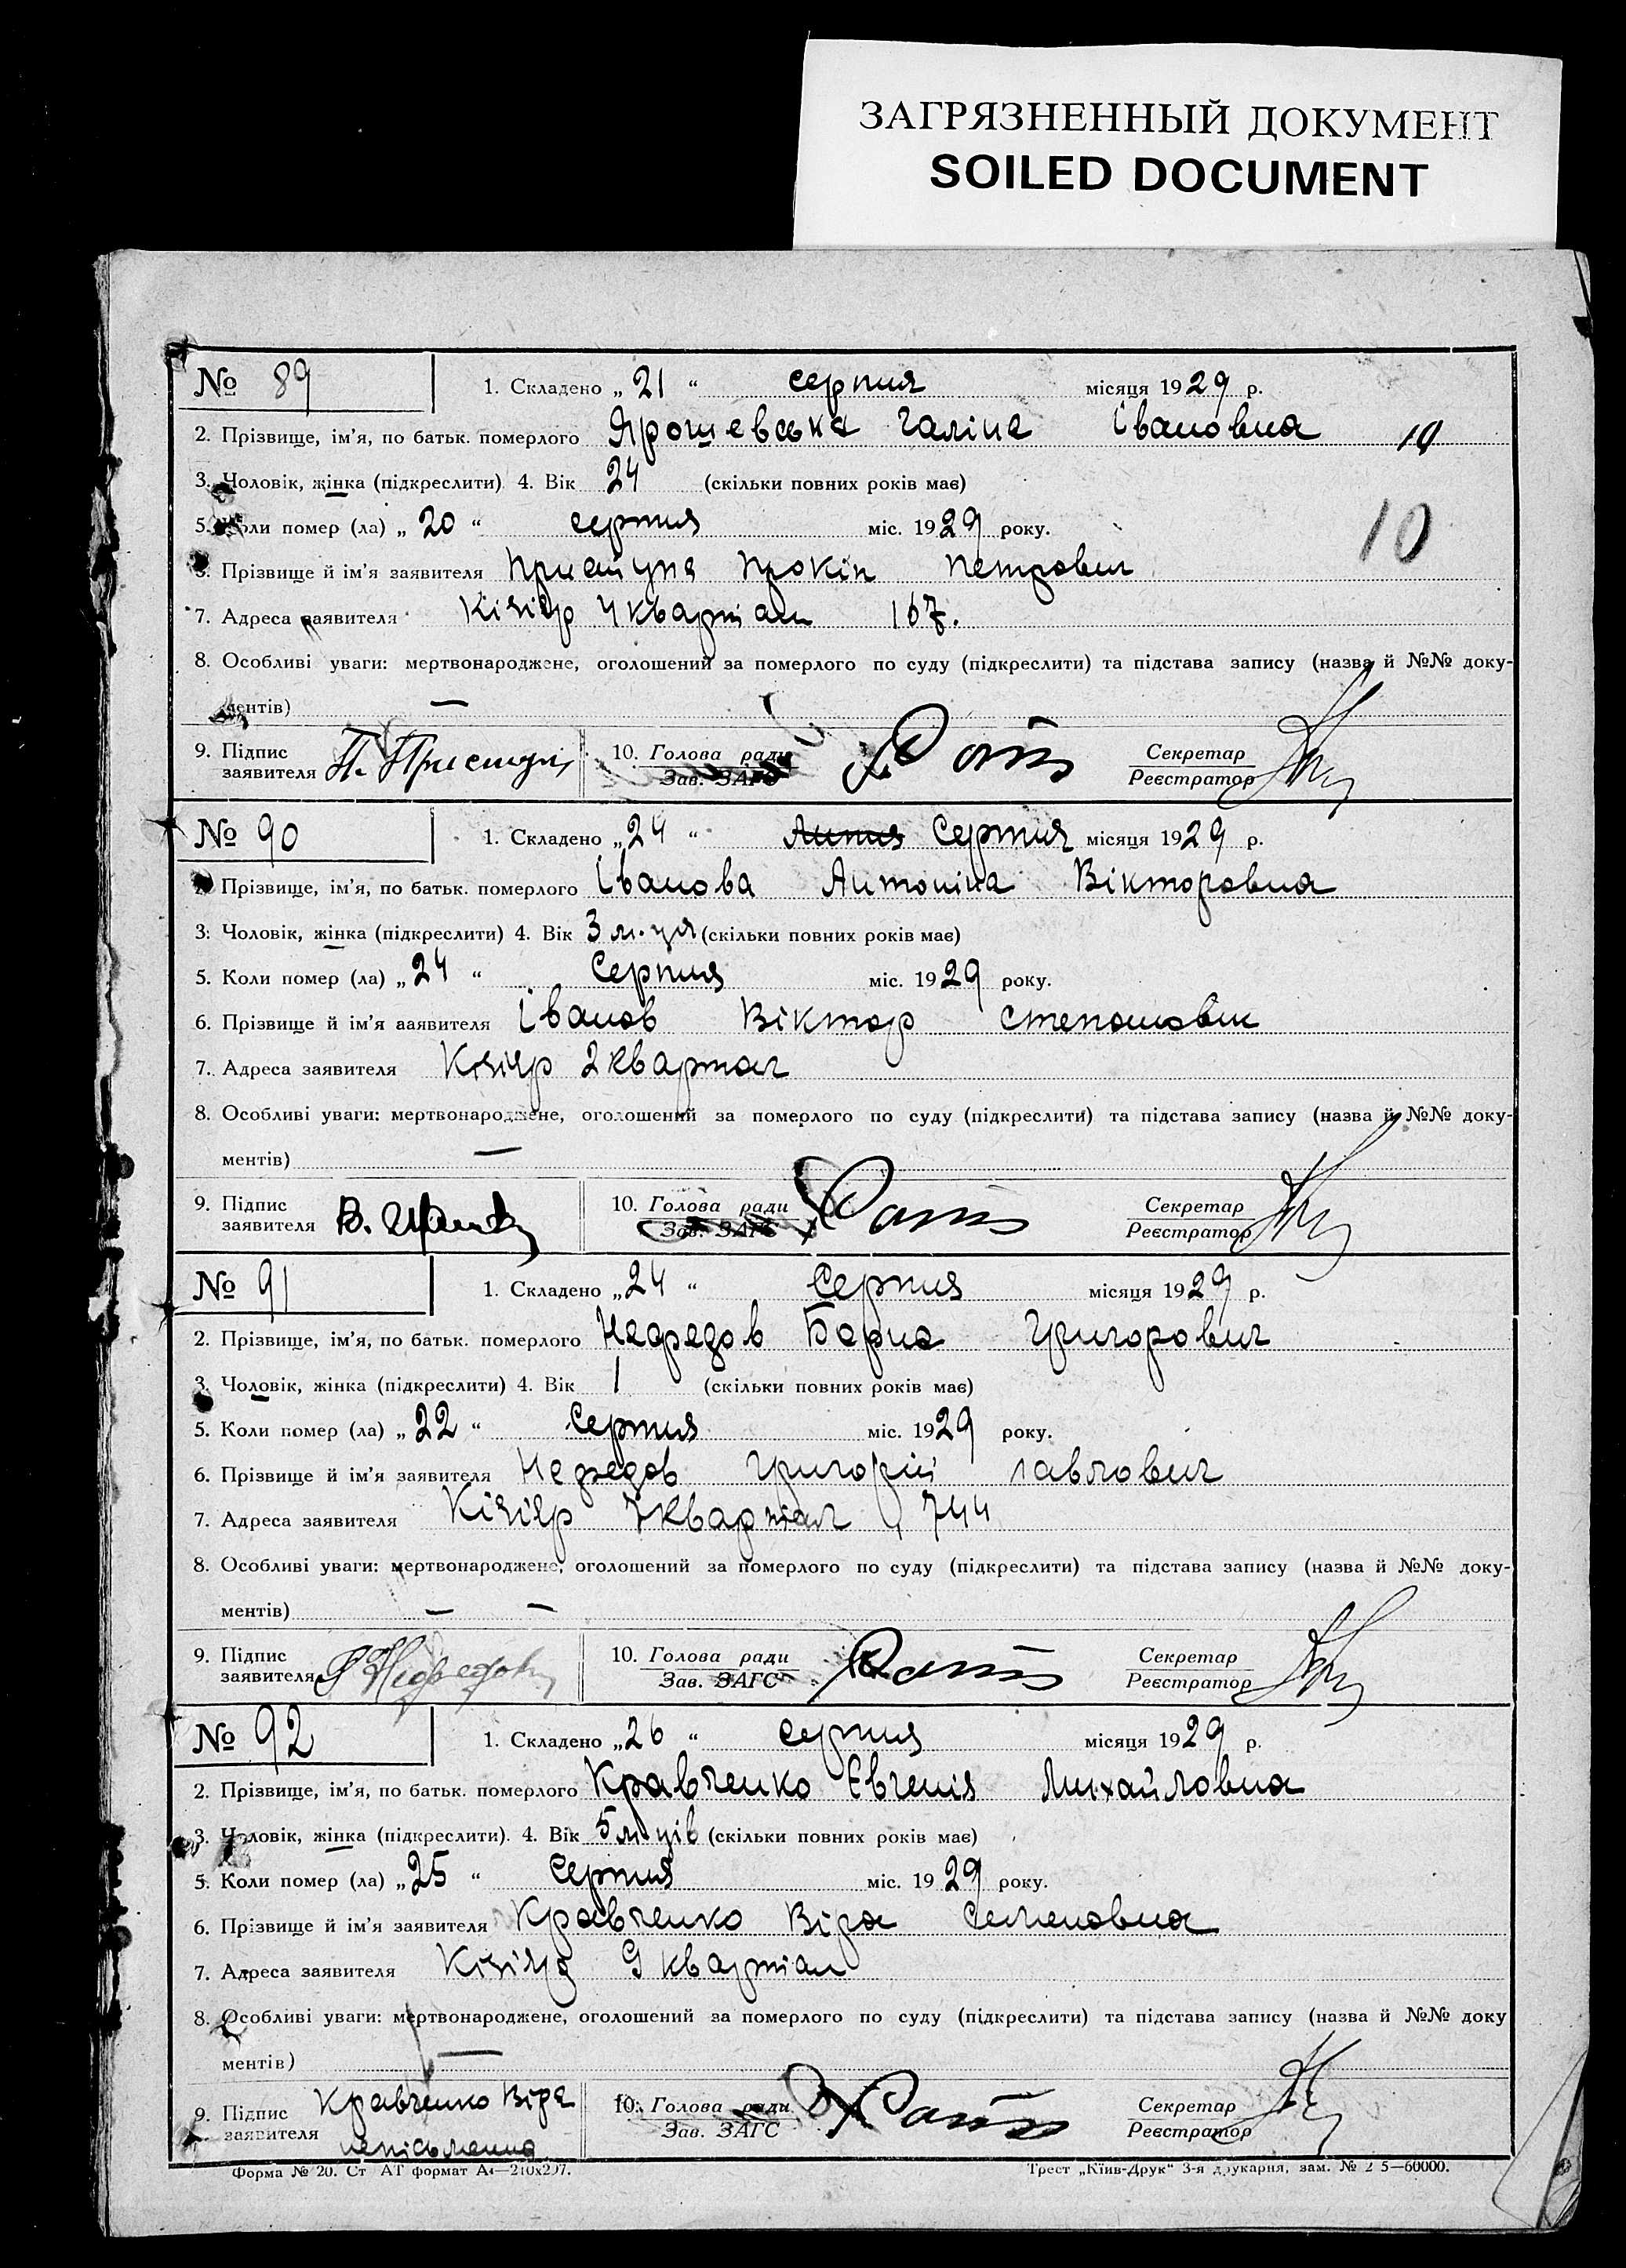 ЗАГРЯЗНЕННЫЙ ДОКУМЕНТ
SOILED DOCUMENT
№ 89 1. Складено „ 21 “ серпня місяця 1929 р.
2. Прізвище, ім’я, по батьк. померлого Ярошевська Галіна Івановна 10
3. Чоловік, жінка (підкреслити) 4. Вік 24 (скільки повних років має)
5. Коли помер (ла) „ 20 “ серпня міс. 1929 року. 10
6. Прізвище й ім’я заявителя Присту​па Прокіп Петрович
7. Адреса заявителя Кічкас 4 квартал 167.
8. Особливі уваги: мертвонароджене, оголошений за померлого по суду (підкреслити) та підстава запису (назва й №№ доку-
ментів) —
9. Підпис 10. Голова ради Секретар
заявителя Зав. ЗАГС Реєстратор
№ 90 1. Складено „ 24 “ Липня Серпня місяця 1929 р.
2. Прізвище, ім’я, по батьк. померлого Іванова Антоніна Вікторовна
3: Чоловік, жінка (підкреслити) 4. Вік 3 м-ця (скільки повних років має)
5. Коли помер (ла) „ 24 “ Серпня міс. 1929 року.
6. Прізвище й ім’я заявителя Іванов Віктор Степанович
7. Адреса заявителя 2 квартал
8. Особливі уваги: мертвонароджене, оголошений за померлого по суду (підкреслити) та підстава запису (назва й №№ доку-
ментів) —
9. Підпис 10. Голова ради Секретар
заявителя Зав. ЗАГС Реєстратор
№ 91 1. Складено „ 24 “ Серпня місяця 1929 р.
2. Прізвище, ім’я, по батьк. померлого Григорович
3. Чоловік, жінка (підкреслити) 4. Вік 1 (скільки повних років має)
5. Коли помер (ла) „ 22 “ Серпня міс. 1929 року.
6. Прізвище й ім’я заявителя Григорій Павлович
7. Адреса заявителя квартал 744
8. Особливі уваги: мертвонароджене, оголошений за померлого по суду (підкреслити) та підстава запису (назва й №№ доку-
ментів) — —
9. Підпис 10. Голова ради Секретар
заявителя Зав. ЗАГС Реєстратор
№ 92 1. Складено „ 26 “ серпня місяця 1929 р.
2. Прізвище, ім’я, по батьк. померлого Кравченко Євгенія Михайловна
3. Чоловік, жінка (підкреслити). 4. Вік 5 м-ців (скільки повних років має)
5. Коли помер (ла) „ 25 “ Серпня міс. 1929 року.
6. Прізвище й ім’я заявителя Кравченко Віра Семеновна
7. Адреса заявителя 9 квартал
8. Особливі уваги: мертвонароджене, оголошений за померлого по суду (підкреслити) та підстава запису (назва й №№ доку
ментів) —
9. Підпис Кравченко Віра 10. Голова ради Секретар
заявителя неписьменна Зав. ЗАГС Реєстратор
Форма № 20. Ст АТ формат А4—210х297. Трест „Київ-Друк“ 3-я друкарня, зам. № 2 5—60000.